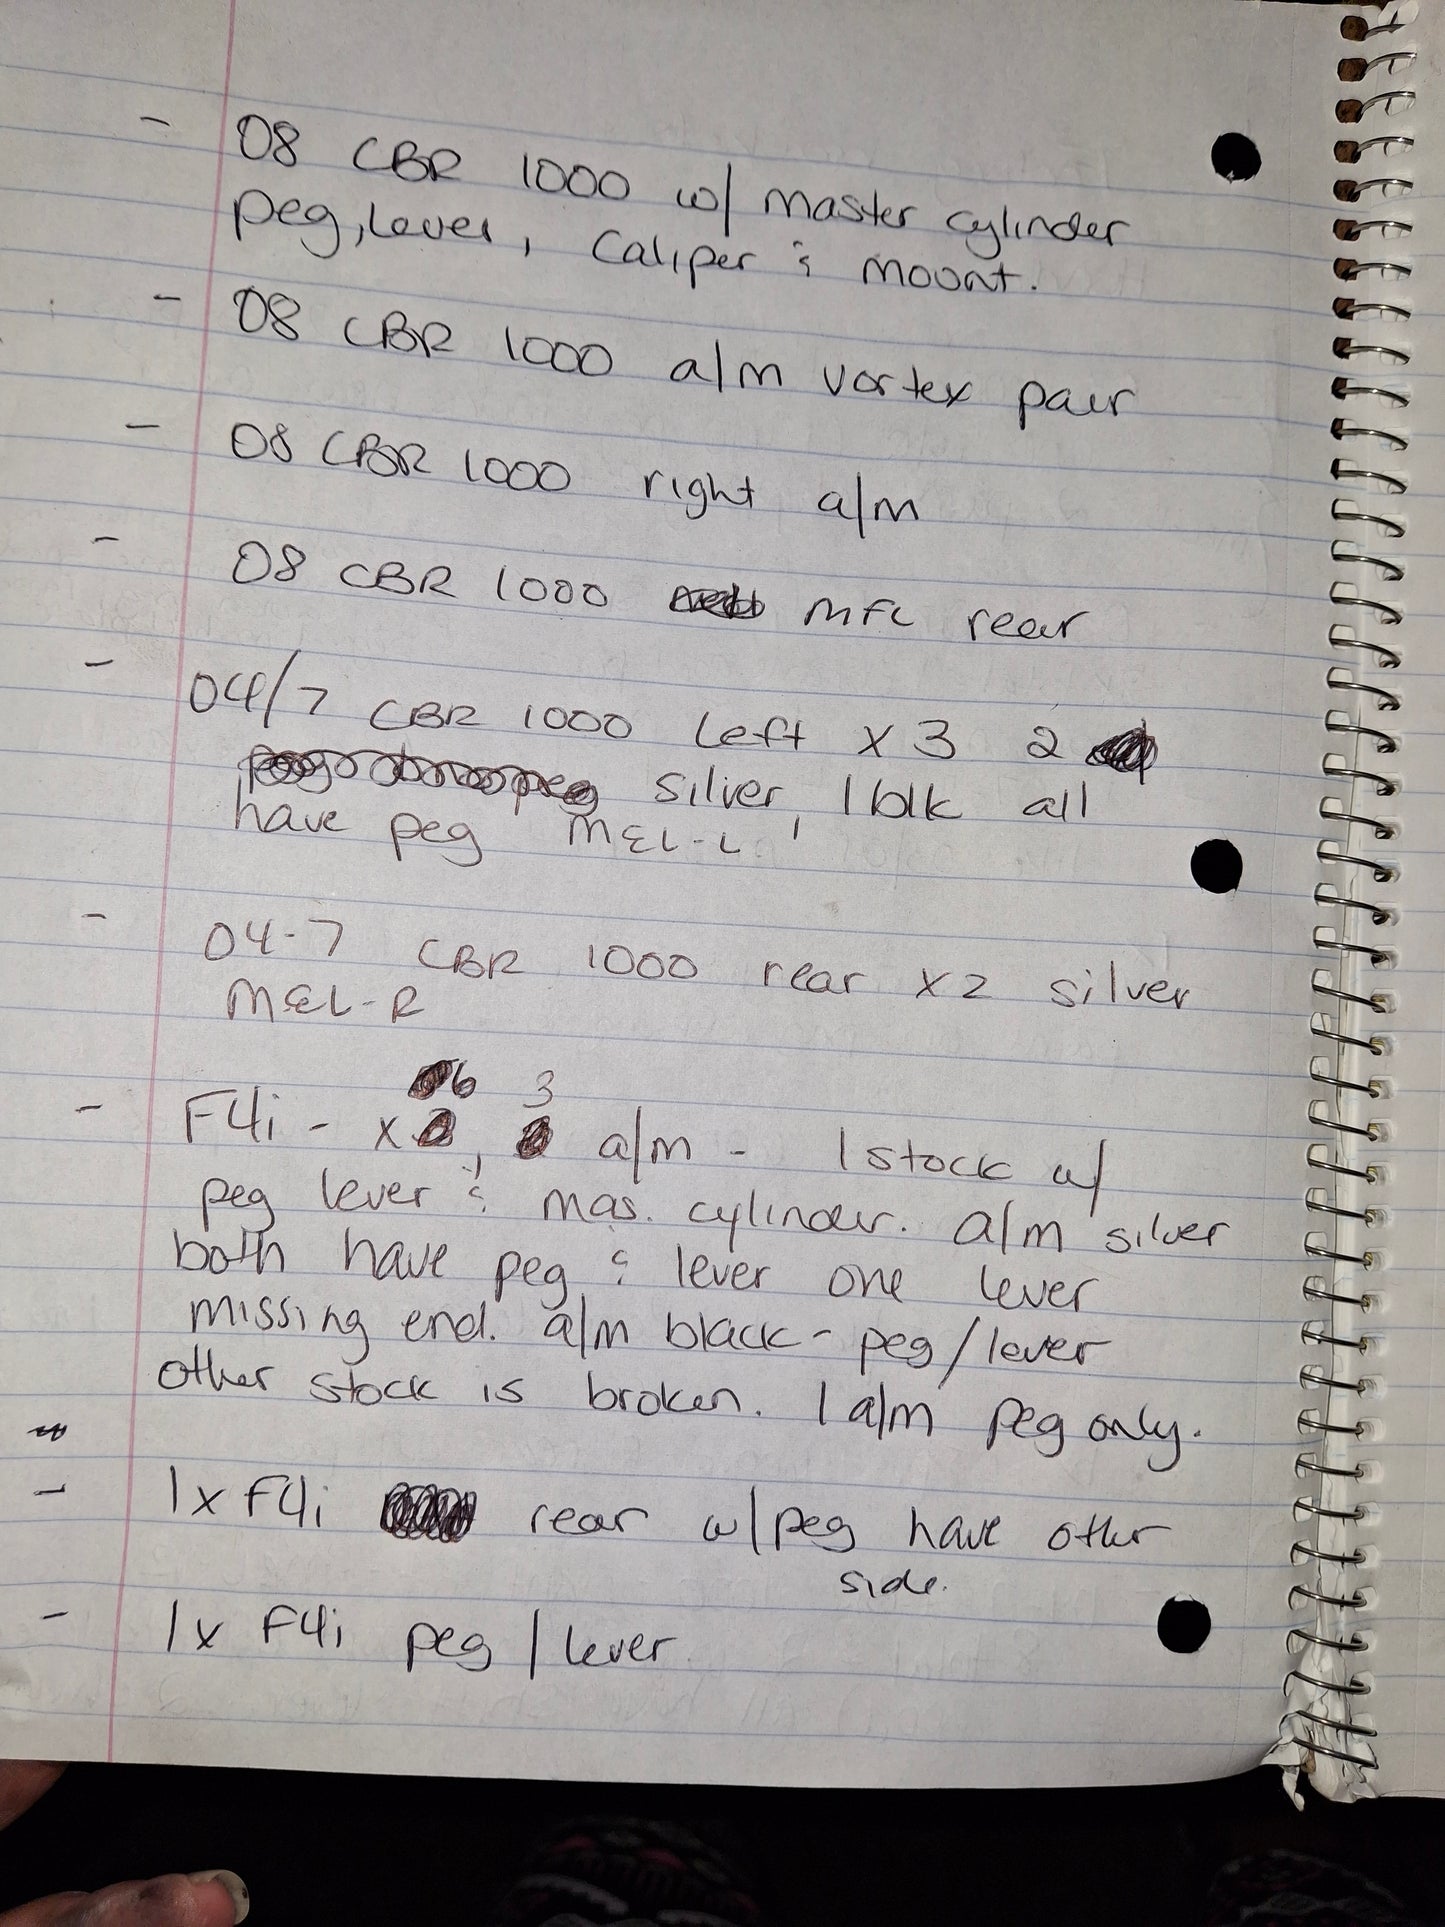 - 08 CBR 1000 w/ master cylinder
peg, lever, caliper & mount.
- 08 CBR 1000 a/m vortex pair
- 08 CBR 1000 right a/m
- 08 CBR 1000 MFL rear
- 04/7 CBR 1000 left x 3 2
silver, 1 blk all
have peg MEL-L
- 04-7 CBR 1000 rear x2 silver
MEL-R
6 3
- F4i - x , a/m - 1 stock w/
peg lever & mas. cylinder. a/m silver
both have peg & lever one lever
missing end. a/m black - peg/lever
other stock is broken. 1 a/m peg only.
- 1x F4i rear w/peg have other
side.
- 1x F4i peg / lever